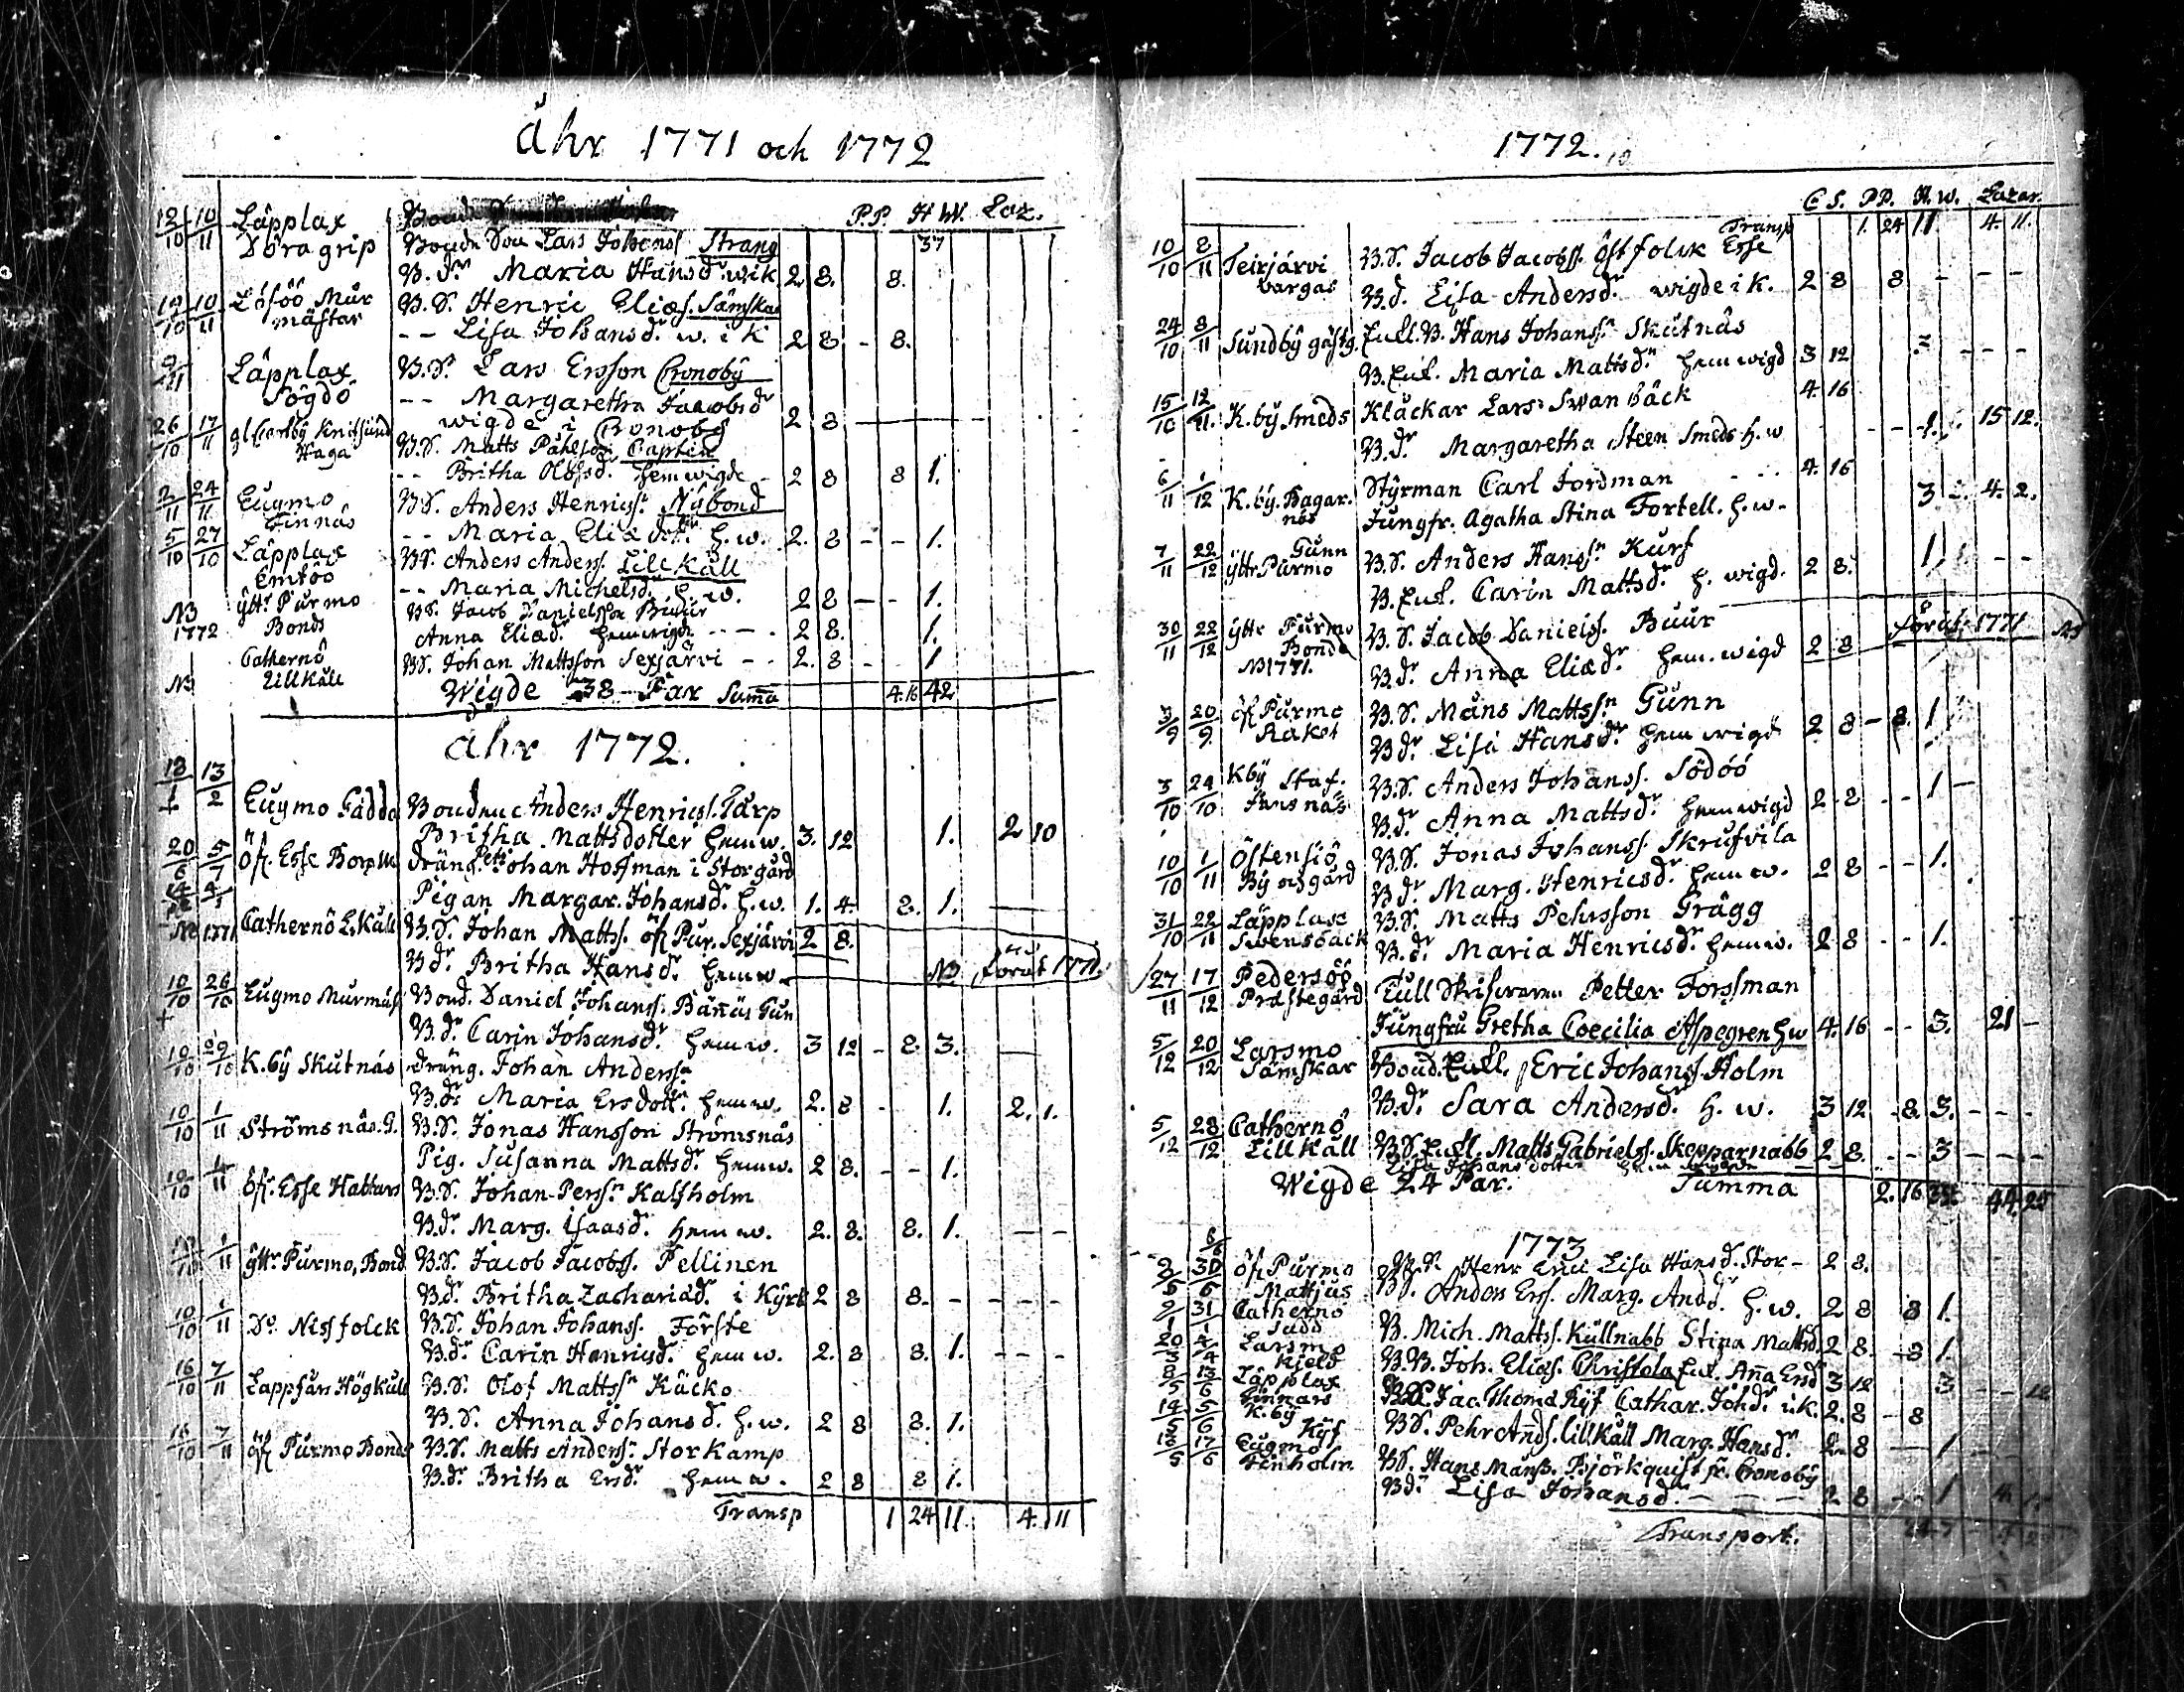 Åhr 1771 och 1772
P.P. H W. Laz.
12/10 10/11 Läpplax Bonde
Döragrip Bonde Son Lars Johanss. Strang 37
B. dr. Maria Hansdr wik 2. 8. 8.
10/11 Lösöö Mur B.S. Henric Eliæs. Sämskar
mästar -- Lisa Johansdr. w. i K 2 8 - 8.
Läpplax B.S. Lars Ersson Cronoby
Sögdö -- Margaretha Jacobsdr
wigde i Cronoby 2 8
26/10 17/11 gl. Carlby Knifsund B.S. Matts Påhlson Captein
Haga -- Britha Olofsdr. hemwigde - 2 8 8 1.
2/11 24/11 Eugmo B.S. Anders Henricss. Nybond
Finnäs -- Maria Eliædotr. h. w. 2. 8 - - 1.
5/10 27/10 Läpplax B.S. Anders Anderss. Lillkull
Emsöö -- Maria Michelsdr. h. w. 2 8 - - 1.
NB ytt. Purmo B.S. Jacob Danielsson Buur
1772 Bonds Anna Eliædr. hemwigde - - - 2 8. 1.
Cathernö B.S. Johan Mattsson Sexjärvi - - 2. 8 - 1
NB Lillkull Wigde 38 Par Summa 4. 16 42
åhr 1772.
13/2 Eugmo Gädda Bonden Anders Henricss. Tarp
Britha Mattsdotter hemw. 3. 12 1. 2 10
20/6 5/7 Öf. Esse Dräng. Petr Johan Hoffman i Storgård
Pigan Margar. Johansdr. h. w. 1. 4. 8. 1.
NB 1771 Cathernö L.Kull B.S. Johan Mattss. öf Pur. Sexjärvi 2 8.
B dr. Britha Hansdr. hemw. NB förut 1771.
10/10 26/10 Eugmo Murmäst Bond. Daniel Johanss. Bännäs Gun
B. dr Carin Johansdr. hemw. 3 12 - 8. 3.
10/10 29/10 K.by Skutnäs dräng. Johan Anderssn
B. dr Maria Ersdottr. hemw. 2. 8 - 1. 2. 1.
10/10 1/11 Strömsnäs. G. B.S. Jonas Hansson Strömsnäs
Pig. Susanna Mattsdr. hemw. 2 8. - - 1.
10/10 1/11 öf. Esse Hattars B.S. Johan Perssn Kalfholm
B. dr. Marg. Isaasdr. hem w. 2. 8. 8. 1. - -
10/10 1/11 ytt. Purmo, Bond B.S. Jacob Jacobss. Pellinen
B. dr. Britha Zachariædr. i Kyrk 2 8 8. - - - -
10/10 1/11 Do. Nissfolck B.S. Johan Johanss. Förste
B. dr. Carin Henricsdr. hem w. 2. 8 8. 1. - - -
16/10 7/11 Lappfars Högkull B.S. Olof Mattssn Käcko
B.S. Anna Johansdr. h. w. 2 8 8. 1.
16/10 7/11 öf Purmo Bonds B.S. Matts Anderssn Storkamp
B. dr Britha Ersdr hem w. 2 8 8 1.
Transp 1 24 11. 4. 11
1772.
C S. PP. H. w. Lazar.
Transp 1. 24 11. 4. 11.
10/10 8/11 Teirjärvi B.S. Jacob Jacobss. östfolck Esse
Vargas B. d. Lisa Andersdr. wigde i K. 2 8 8 - - -
24/10 8/11 Sundby gästg. Enkl. B. Hans Johanssn. Skutnäs
B. Enk. Maria Mattsdr hemwigd 3 12 3 - - -
15/10 12/11. K.by Smeds Kläckar Lars Swanbäck 4. 16
B. dr Margaretha Steen Smeds h. w - - 1. 15 12.
6/11 1/12 K.by. Hagar. Styrman Carl Jordman 4. 16
näs Jungfr. Agatha Stina Fortell. h. w. 3 4. 2.
7/11 22/12 Gunn B.S. Anders Hanssn Kurf
ytt. Purmo B. Enk. Carin Mattsdr h. wigd. 2 8. 1. - -
30/11 22/12 ytt. Purmo B.S. Jacob Danielss. Buur förut. 1771 NB
Bonds B. dr Anna Eliædr. hem. wigd 2 8
NB 1771.
3/9 20/9 öf Purmo B.S. Måns Mattssn Gunn
B dr. Lisa Hansdr. hem wigd 2 8 - 8. 1.
3/10 24/10 K by Staf. B.S. Anders Johanss. Södöö
B. dr. Anna Mattsdr. hemwigd 2 8 - - 1 -
10/10 1/11 Östensiö B.S. Jonas Johanss. Skrufvila
B. dr Marg. Henricsdr. hem w. 2 8 - - 1.
31/10 22/11 Läpplax B.S. Matts Pehrsson Grägg
Swensback B. dr. Maria Henricsdr. hemw. 2 8 - - 1.
27/11 17/12 Pedersöö Tullskrifwaren Petter Forssman
Prästegård Jungfru Gretha Coecilia Aspegren h w 4. 16 - - 3. 21 -
5/12 20/12 Larsmo Bond. Enkl. Eric Johanss. Holm
Sämskar B. dr Sara Andersdr. h. w. 3 12 - 8. 3. - - -
5/12 28/12 Cathernö
Lillkull B.S. Enkl. Matts Gabrielss. Skepparnabb 2 8. - - 3 - - -
Lisa Johans dotter
Wigde 24 Par. Summa 2. 16
1773
öf Purmo B.S. Henr Lisa Hansd. Stor - 2 8.
Mattjus B.S. Anders Ers. Marg. Andd. h. w. 2 8 8 1.
31 Cathernö
Larsmo B. Mich. Mattss. Kullnabb Stina Mattsd. 2 8. - 8 1.
Läpplax B. B. Joh. Eliæs. Christola Enk. Anna Ersd 3 12 3
Finnars B.S. Jac. Thomæ Kyf Cathar. Johdr i k. 2. 8 - 8
K. by Kyf B.S. Pehr Ands. Lillkull Marg. Hansdr 2 8 - 1
Eugmo B.S. Hans Månss. Björkquist fr. Cronoby
Finholm B. d. Lisa Johansdr. - - - 2 8 - - 1
Transport.